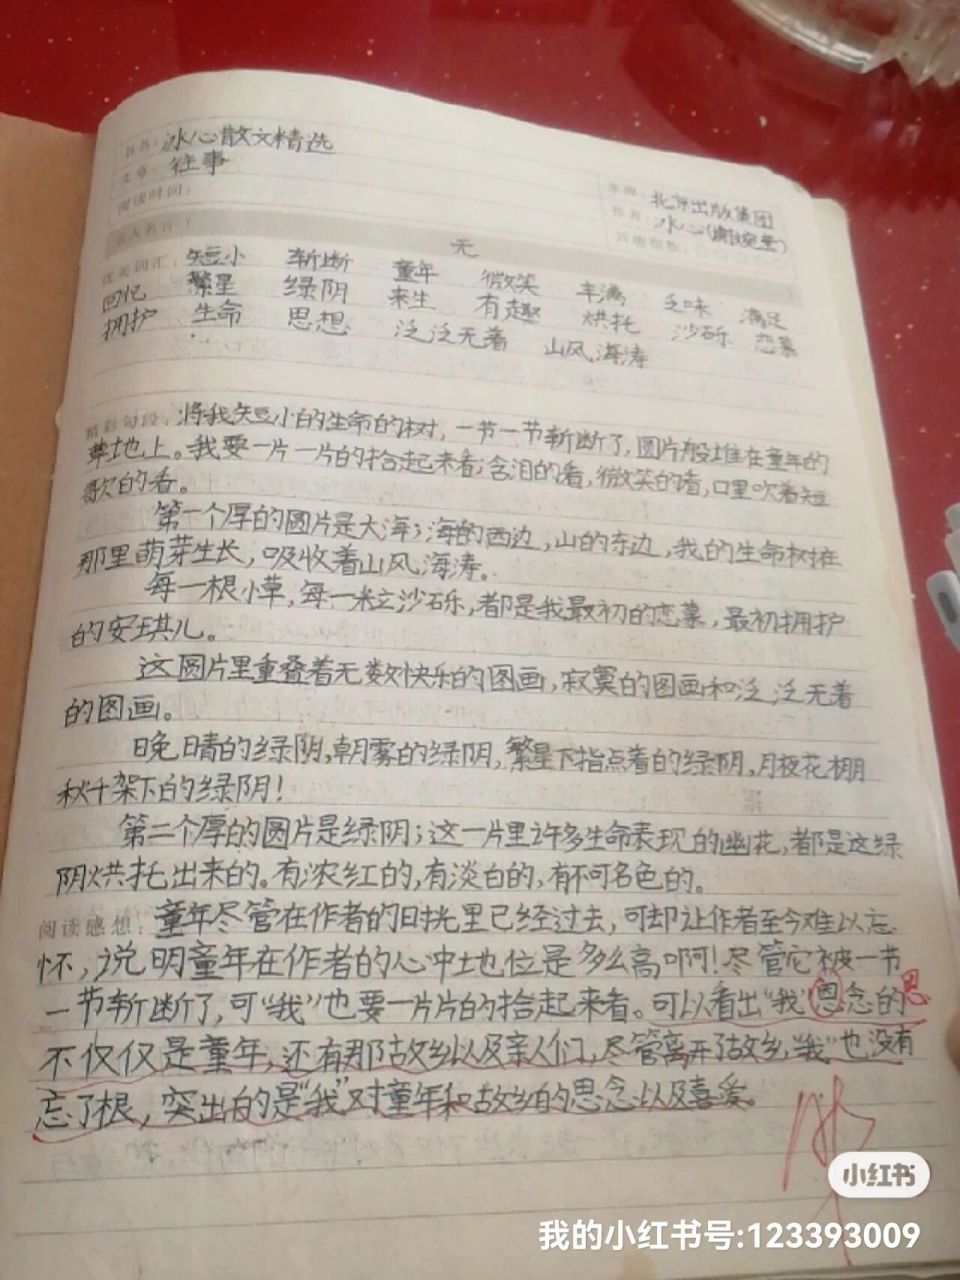 书名：冰心散文精选
文章：往事
阅读时间：
来源：北京出版集团
作者：冰心(谢婉莹)
兴趣指数：
名人名言：无
优美词汇：短小 斩断 童年 微笑 丰满 乏味 满足
回忆 繁星 绿阴 来生 有趣 烘托 沙砾 恋慕
拥护 生命 思想 泛泛无着 山风海涛
精彩句段：将我短小的生命的树，一节一节斩断了，圆片般堆在童年的
草地上。我要一片一片的拾起来看；含泪的看，微笑的看，口里吹着短
歌的看。
第一个厚的圆片是大海；海的西边，山的东边，我的生命树在
那里萌芽生长，吸收着山风海涛。
每一根小草，每一粒沙砾，都是我最初的恋慕，最初拥护
的安琪儿。
这圆片里重叠着无数快乐的图画，寂寞的图画和泛泛无着
的图画。
晚晴的绿阴，朝雾的绿阴，繁星下指点着的绿阴，月夜花棚
秋千架下的绿阴！
第二个厚的圆片是绿阴；这一片里许多生命表现的幽花，都是这绿
阴烘托出来的。有浓红的，有淡白的，有不可名色的。
阅读感想：童年尽管在作者的时光里已经过去，可却让作者至今难以忘
怀，说明童年在作者的心中地位是多么高啊！尽管它被一节
一节斩断了，可“我”也要一片片的拾起来看。可以看出“我”恩念的 思
不仅仅是童年，还有那故乡以及亲人们，尽管离开了故乡，“我”也没有
忘了根，突出的是“我”对童年和故乡的思念以及喜爱。
小红书
我的小红书号:123393009